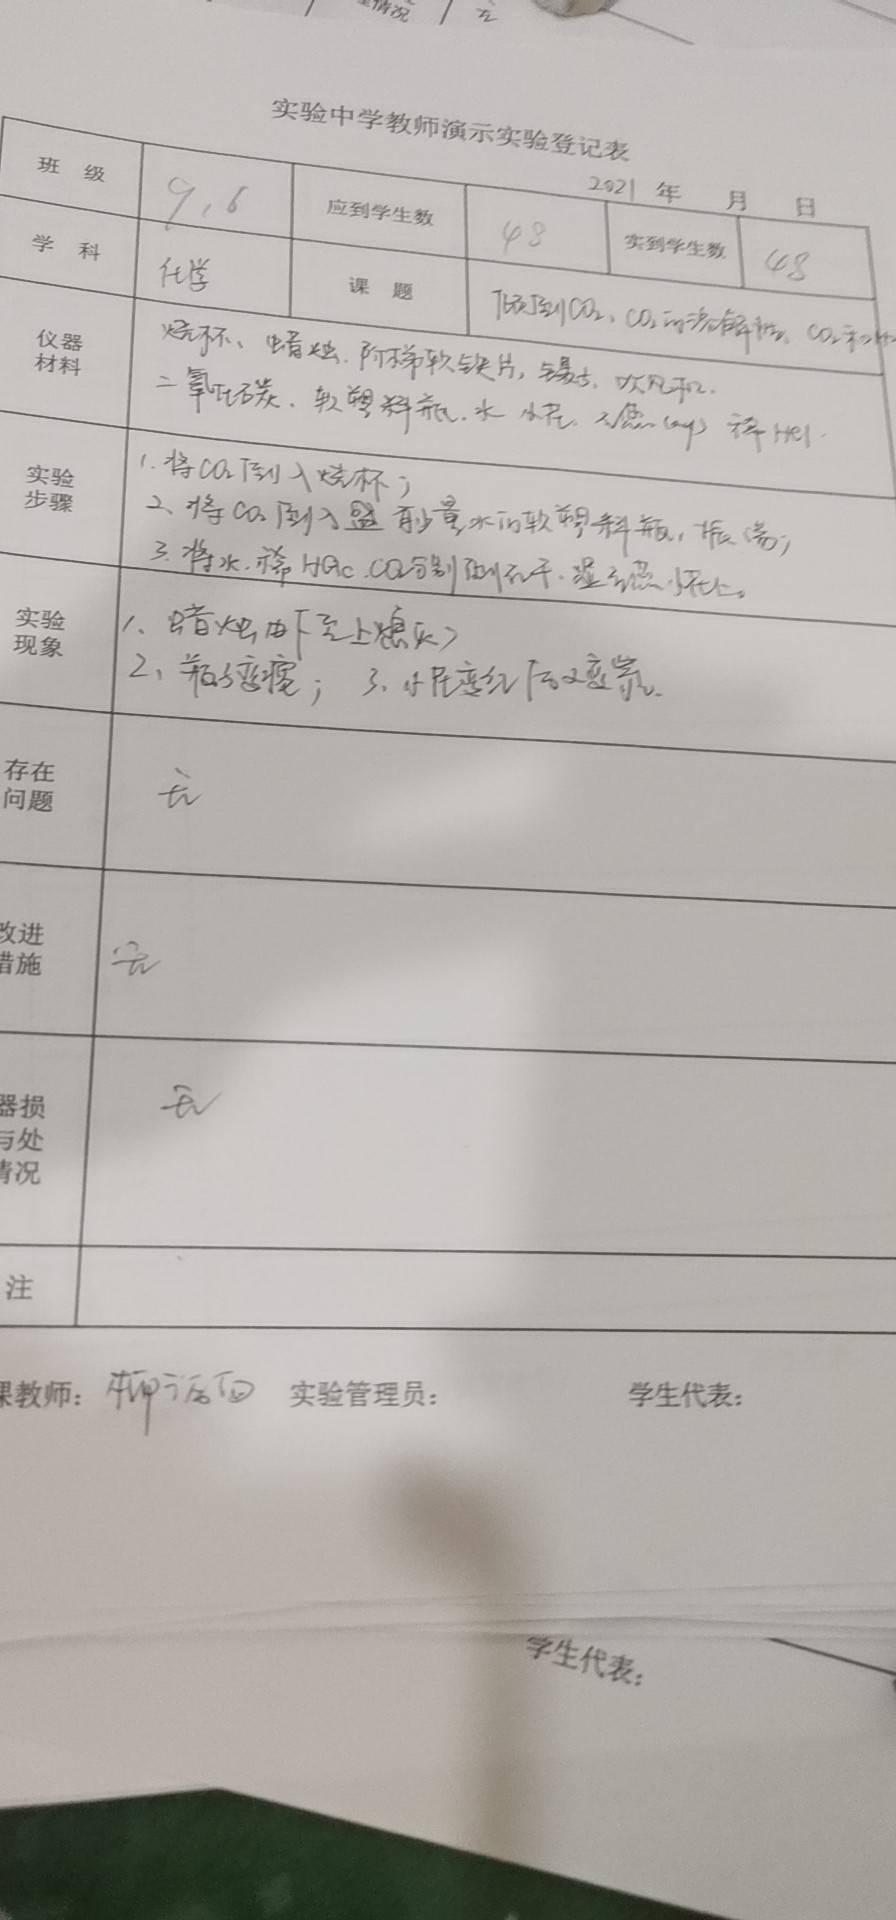 情况 无
实验中学教师演示实验登记表
2021 年 月 日
班 级 9.6 应到学生数 48 实到学生数 48
学 科 化学 课 题 倾倒CO₂、CO₂的溶解性、CO₂和
仪器
材料
烧杯、蜡烛、阶梯软铁片,
二氧化碳、软塑料瓶、水
实验
步骤
1. 将CO₂倒入烧杯;
2、将CO₂倒入盛有少量水的软塑料瓶,振荡;
3. 将水、稀HAc、CO₂分别
实验
现象
1、蜡烛由下至上熄灭;
2、瓶子变瘪; 3、小花变红后又变紫。
存在
问题
无
改进
措施
无
器损
与处
情况
无
注
课教师: 实验管理员: 学生代表:
学生代表: